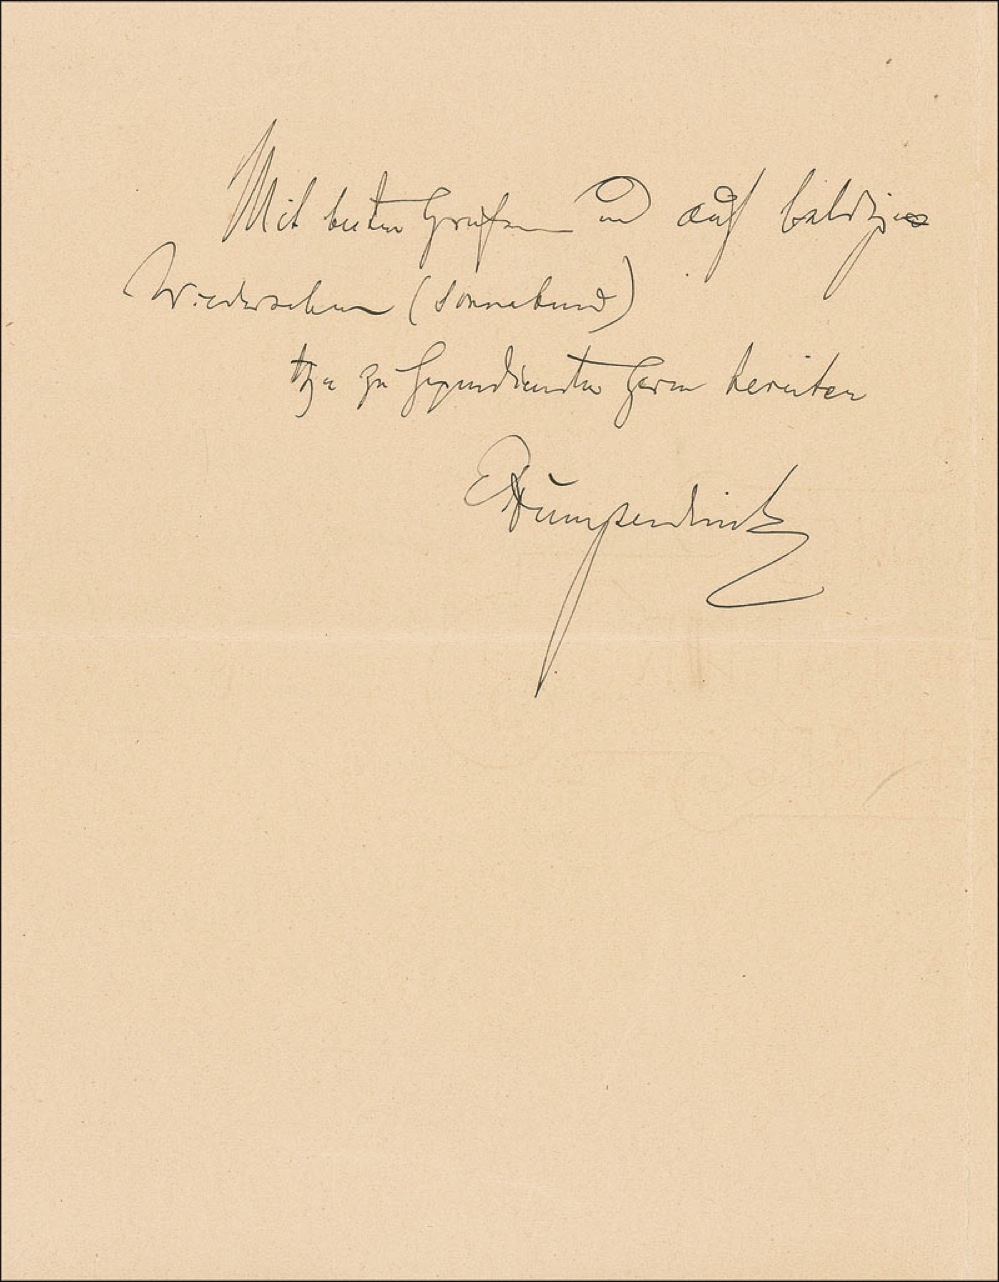 Mit besten Grüßen und auf baldiges
Wiedersehen (Sonnabend)
zu Gegendiensten gern bereiten
EHumperdinck